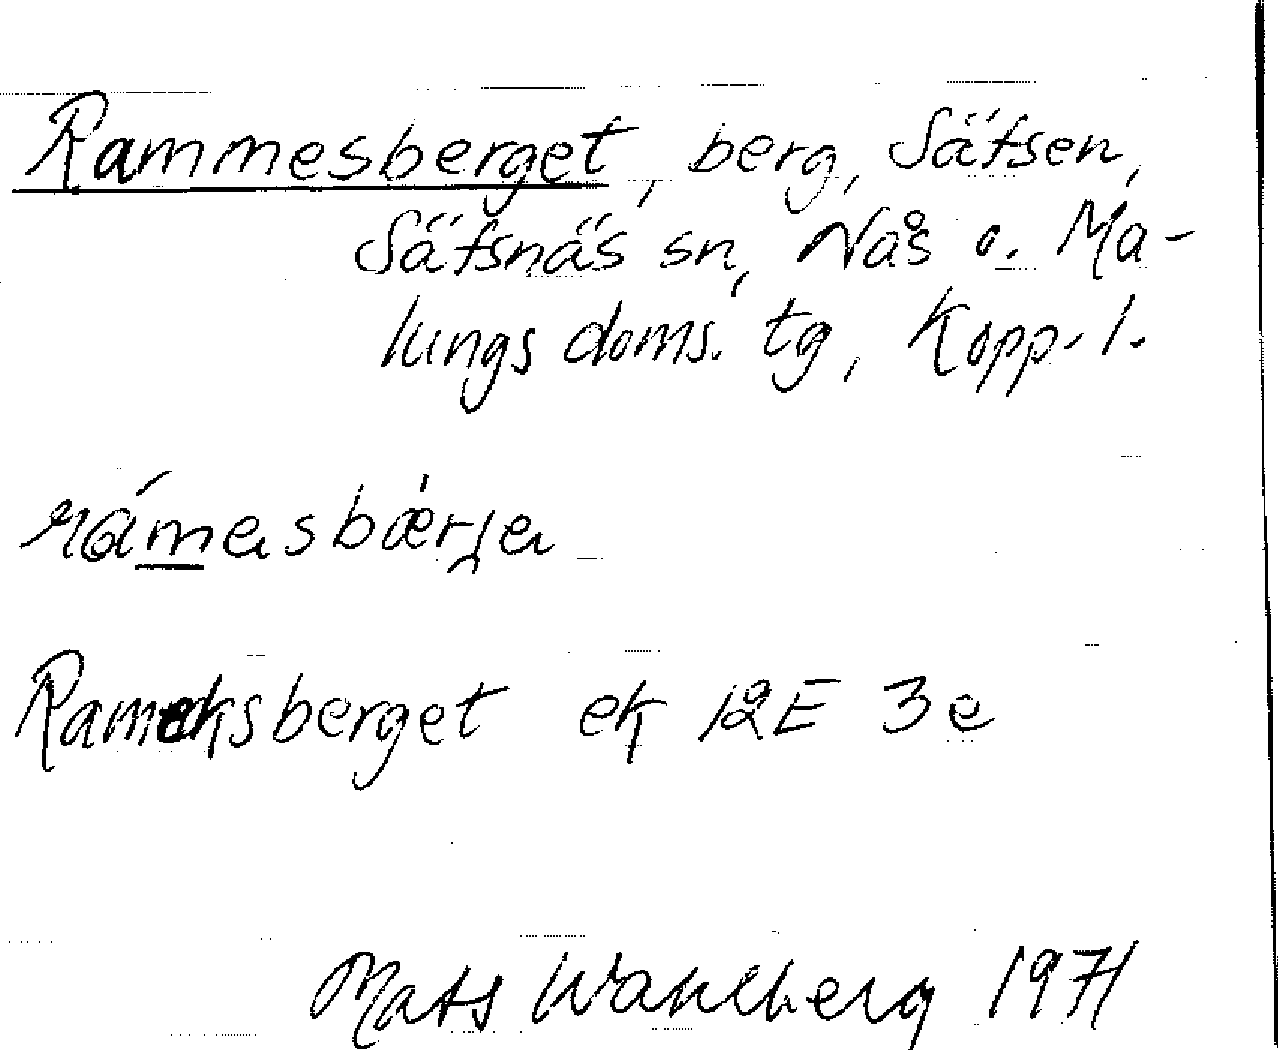 Rammesberget, berg, Säfsen,
Säfsnäs sn, Nås o. Ma-
lungs doms. tg, Kopp. l.
rámesbærje
Rameksberget ek 12E 3e
Mats Wahlberg 1971